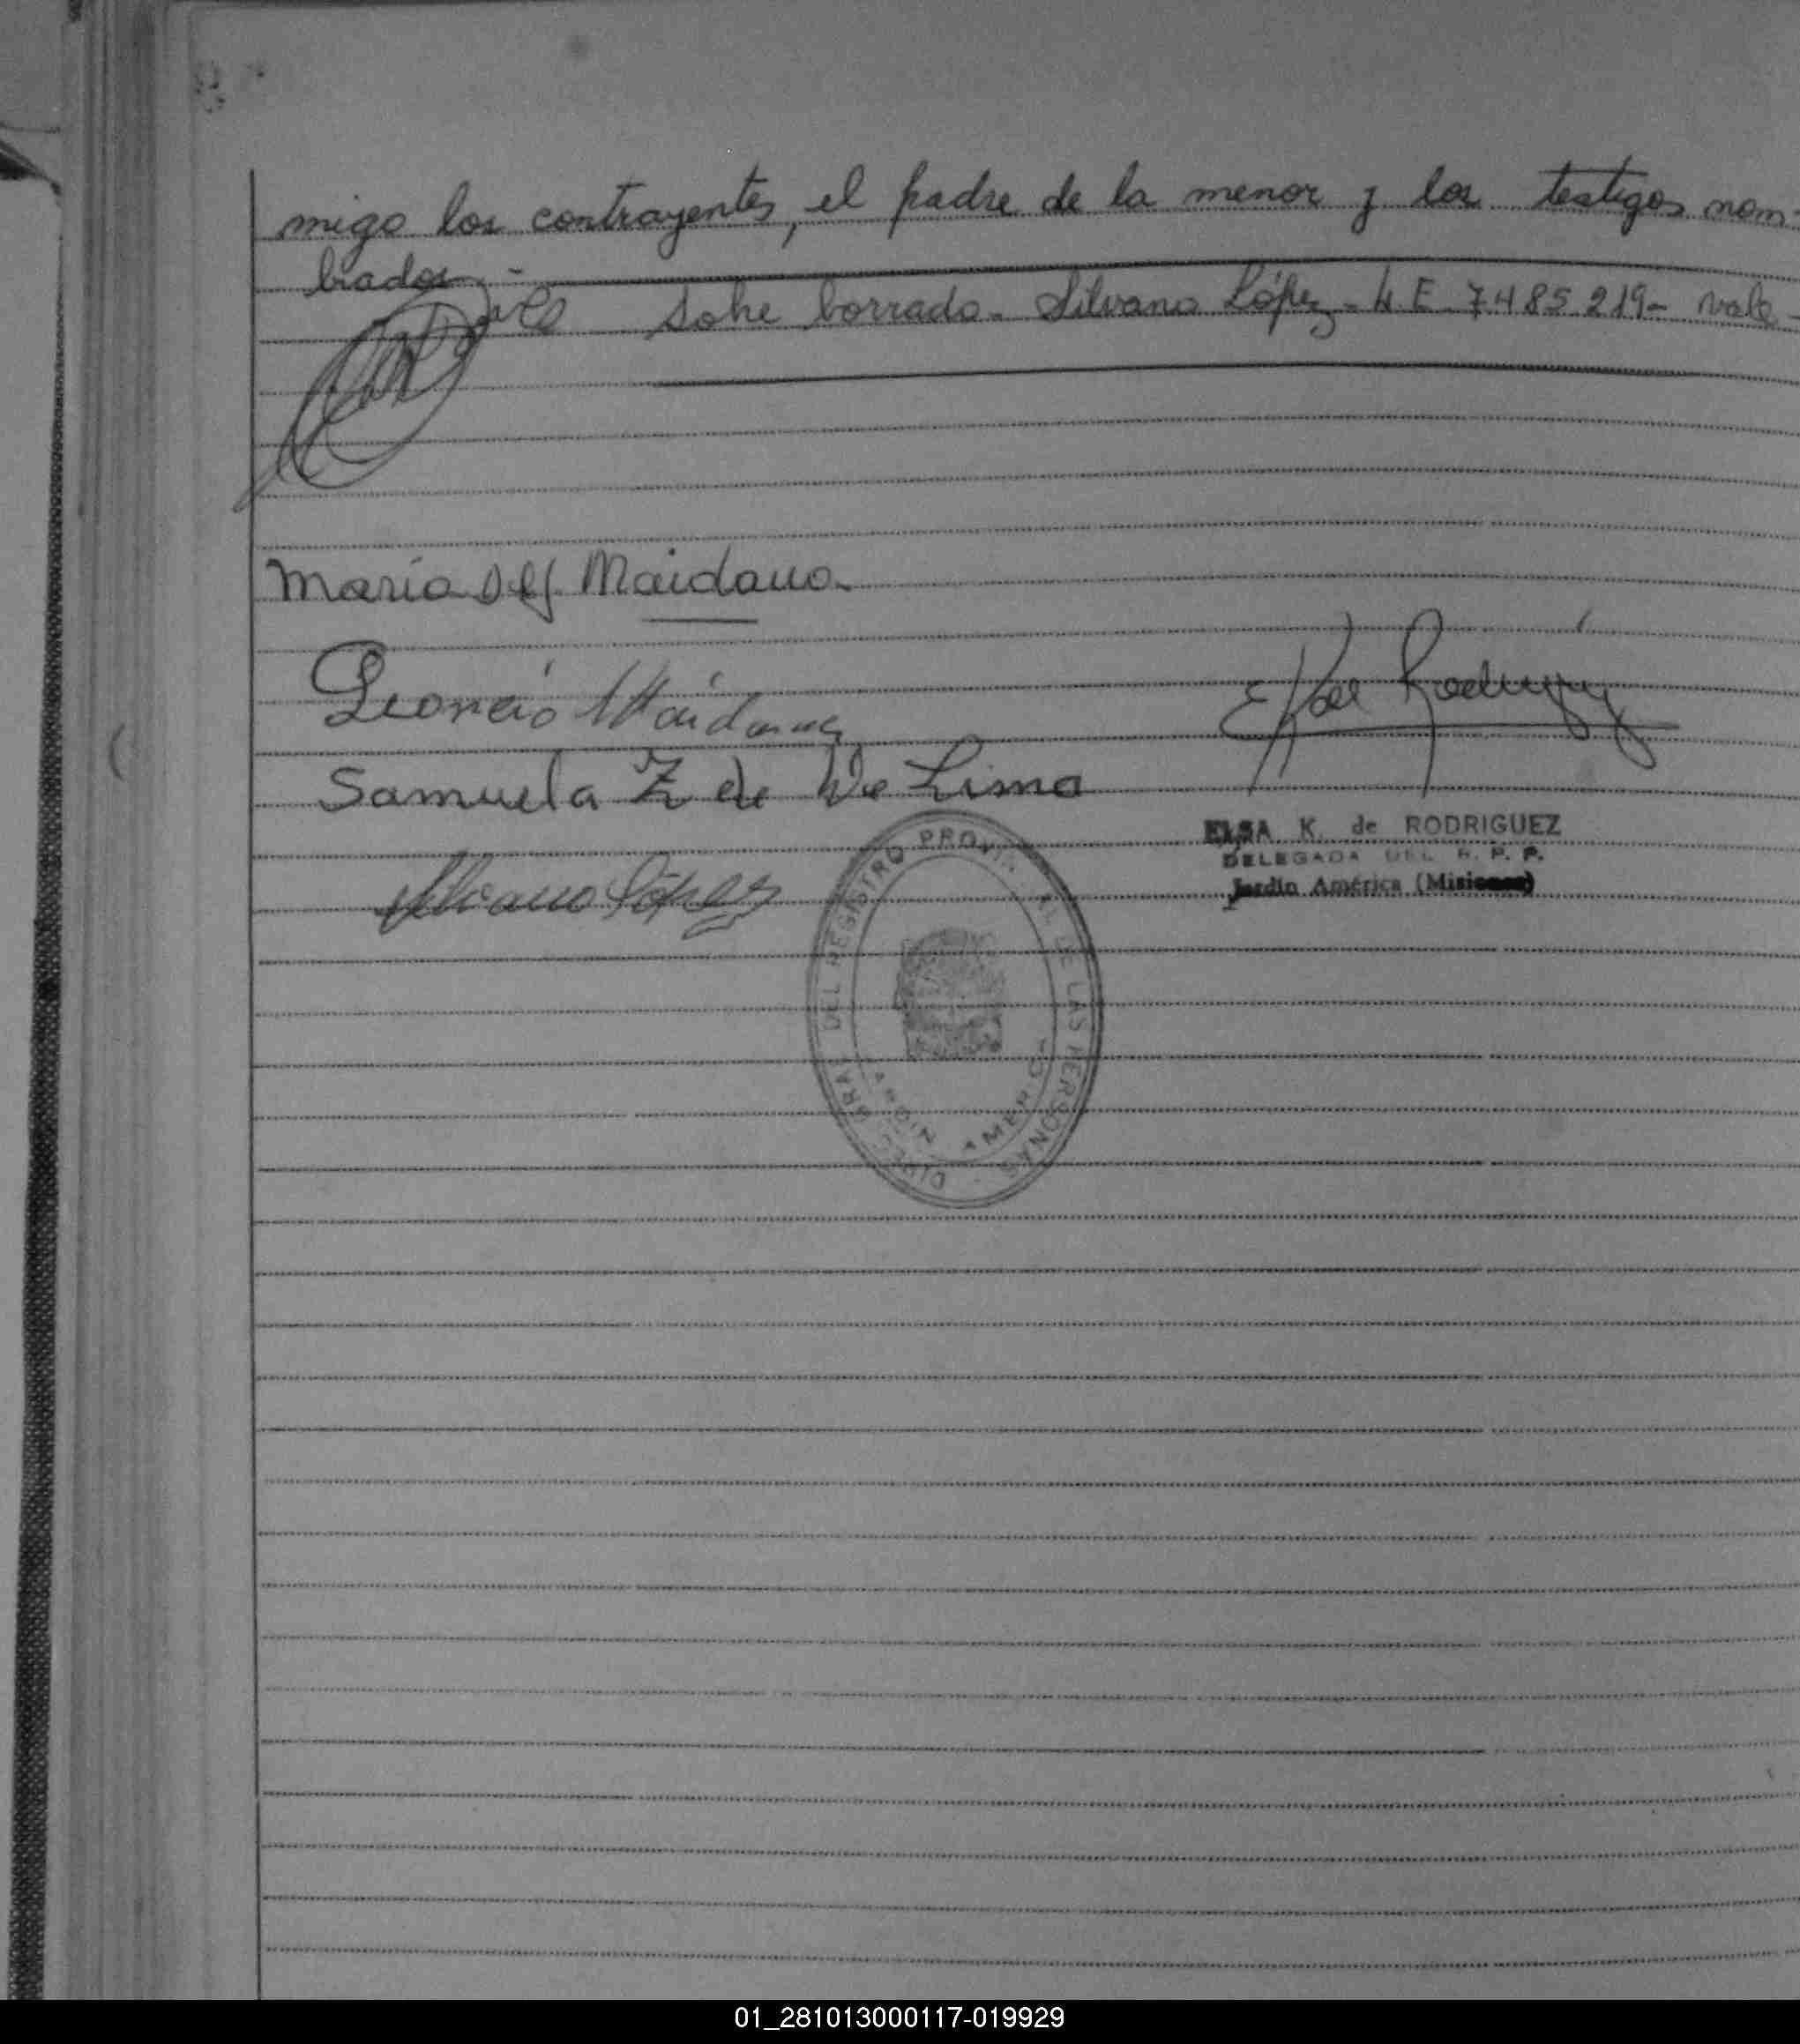 migo los contrayentes, el padre de la menor y los testigos nom-
brados.-
Sobre borrado. Silvano López - L.E. 7.485.219- vale-
Maria Del Maidana
Leoncio Maidana
Samuela Z de De Lima
Silvano López
ELSA K. de RODRIGUEZ
DELEGADA DEL R. P. P.
Jardín América (Misiones)
DEL REGISTRO PROVINCIAL DE LAS PERSONAS
AMERICA
01_281013000117-019929